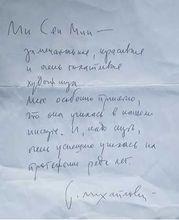 Ми Сен Мин —
замечательная, красивая
и очень талантливая
художница.
Мне особенно приятно,
что она училась в нашем
институте. И, надо
очень успешно училась на
протяжении ряда лет.